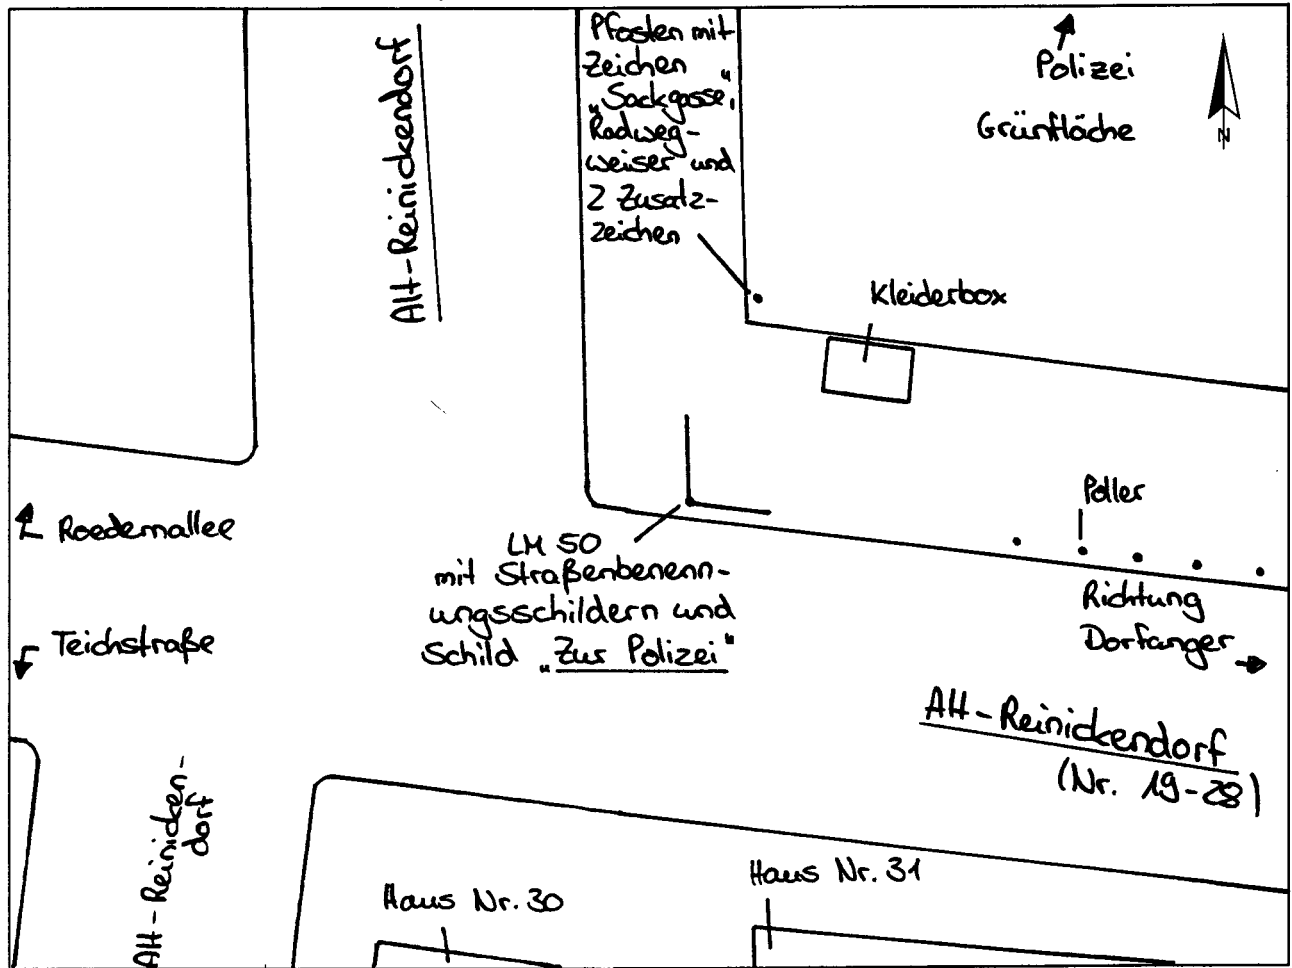 Alt-Reinickendorf
Pfosten mit
Zeichen
„Sackgasse",
Radweg-
weiser und
2 Zusatz-
zeichen
Polizei
Grünfläche
N
Kleiderbox
Roedernallee
Teichstraße
LM 50
mit Straßenbenenn-
ungsschildern und
Schild „Zur Polizei"
Poller
Richtung
Dorfanger
Alt-Reinickendorf
(Nr. 19-28)
Alt-Reinicken-
dorf
Haus Nr. 30
Haus Nr. 31